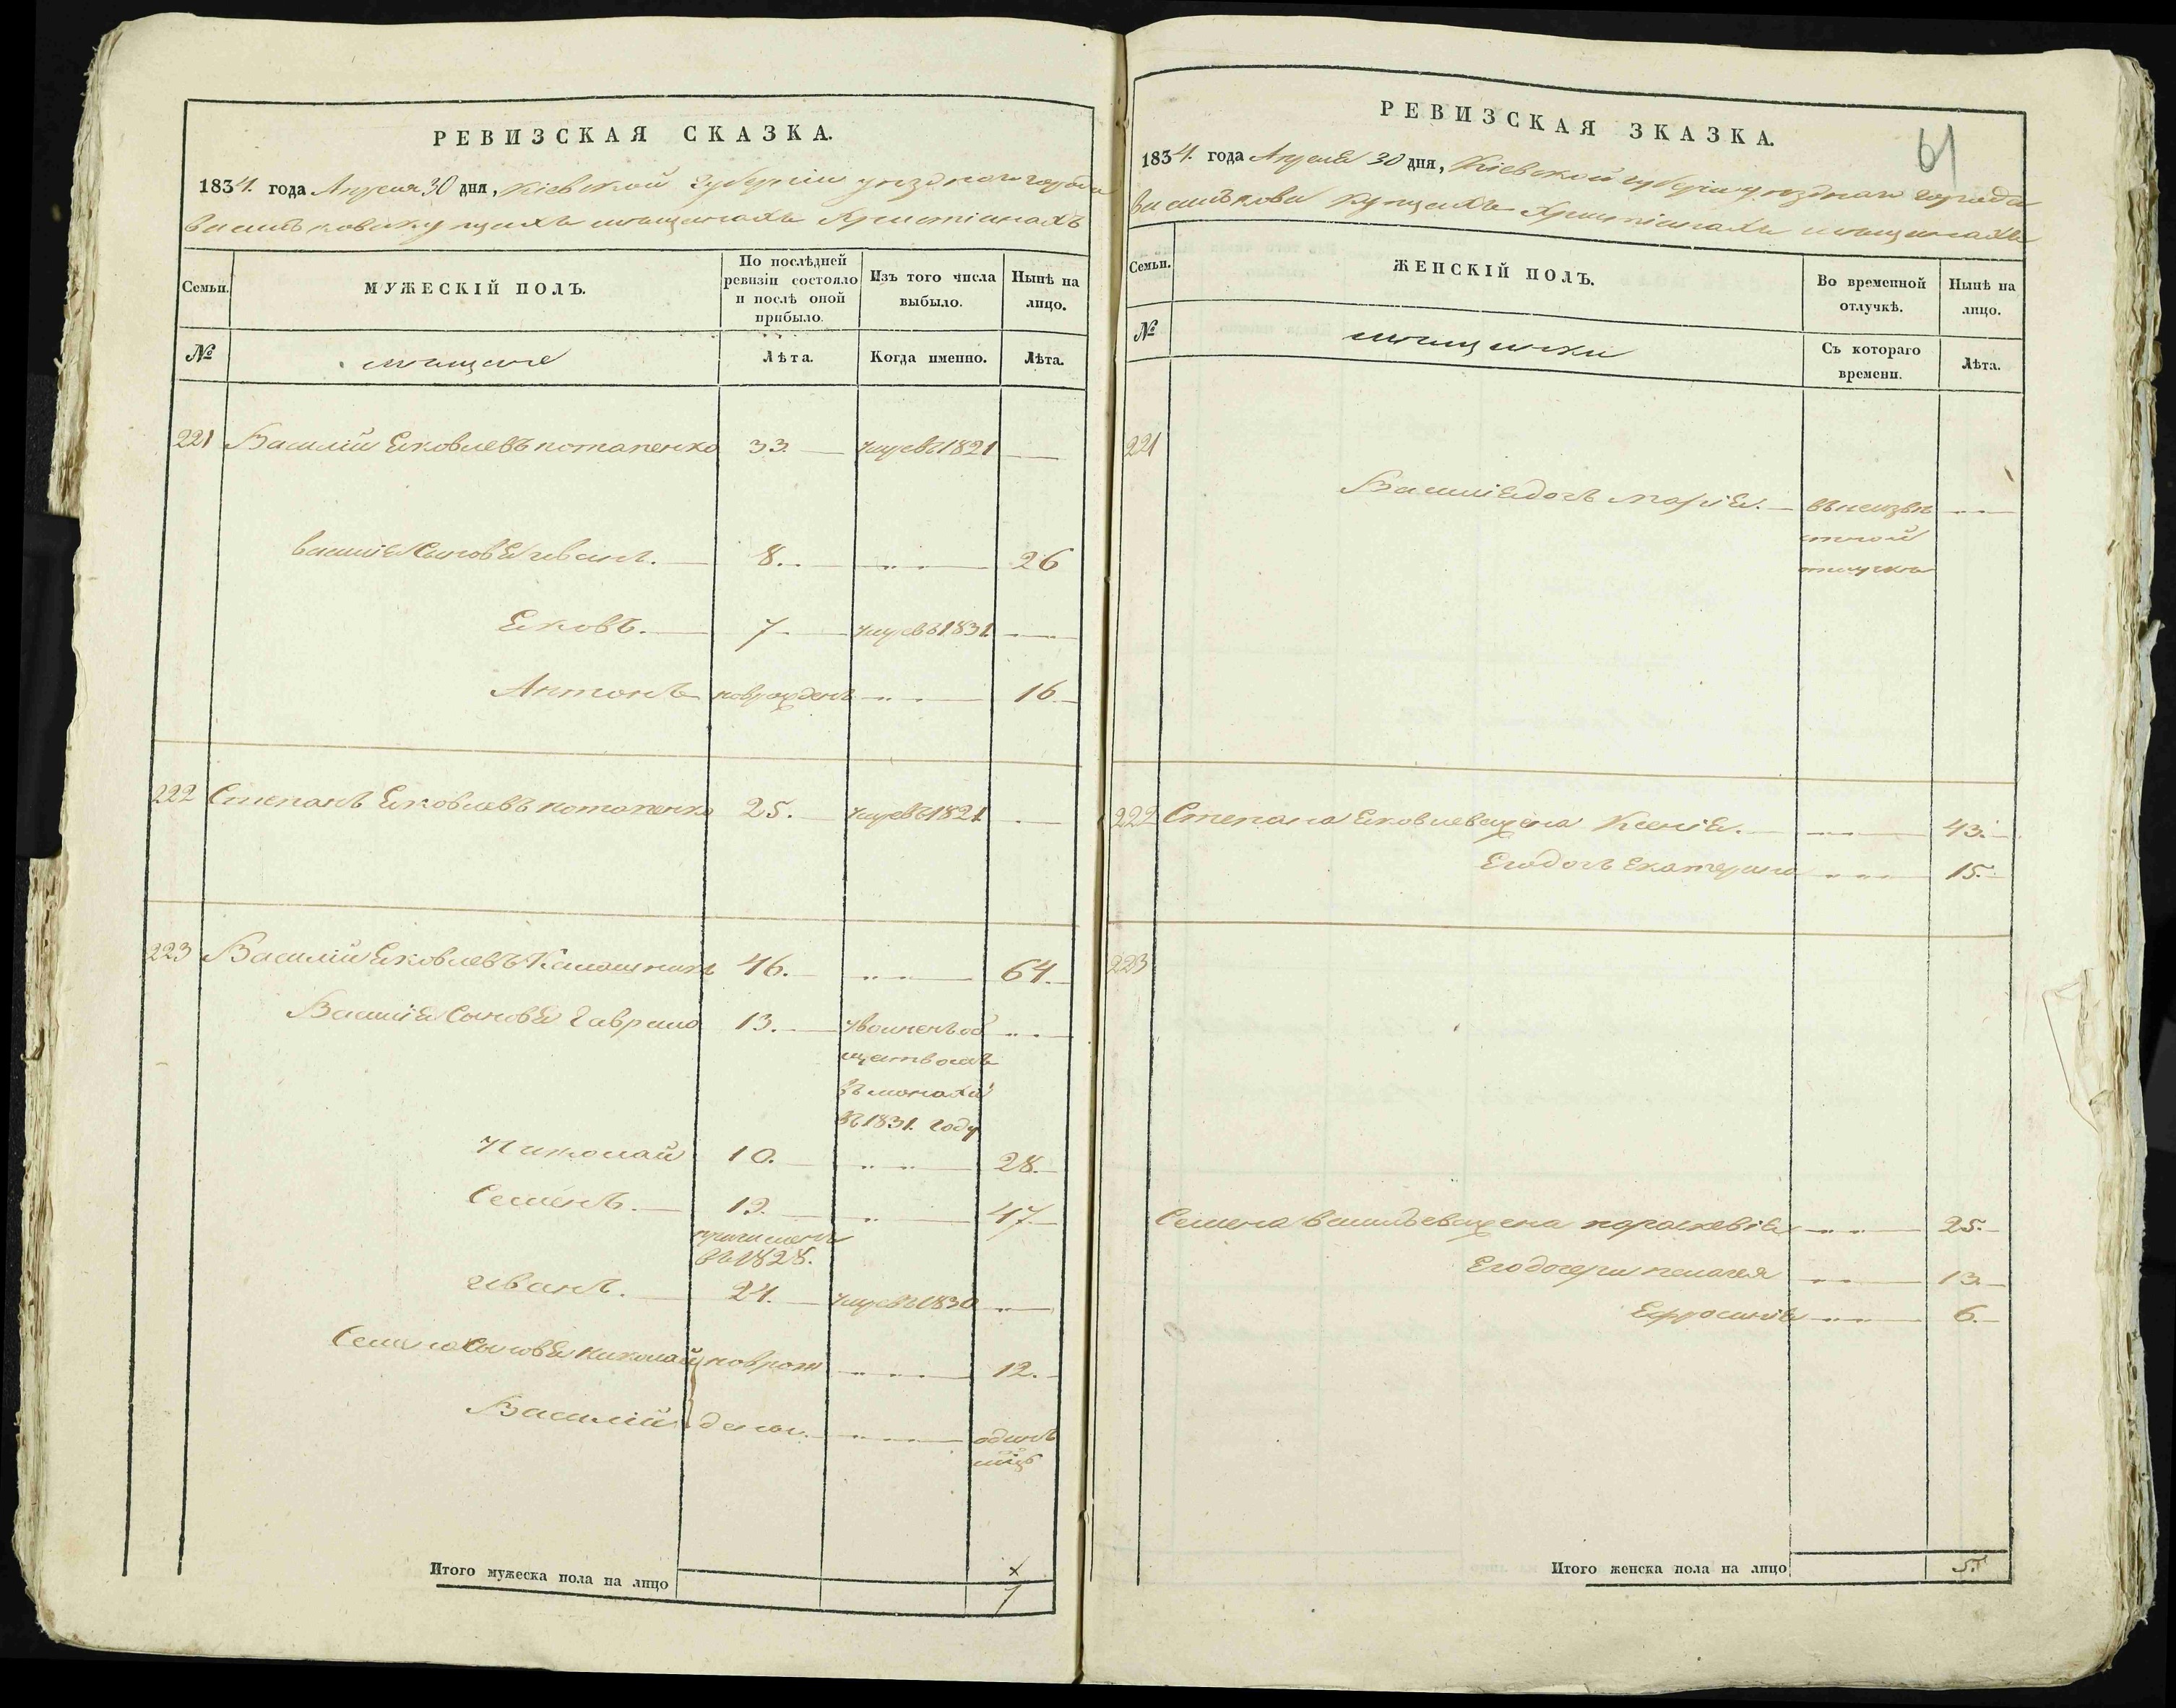 РЕВИЗСКАЯ СКАЗКА.
1834. года Апреля 30 дня, Кіевской губерніи уезднаго города
василькова купцахъ мещанахъ христіанахъ
Семьи. МУЖЕСКІЙ ПОЛЪ. По послѣдней ревизіи состояло и послѣ оной прибыло. Изъ того числа выбыло. Нынѣ на лицо.
№ мещане Лѣта. Когда именно. Лѣта.
221 Василій Яковлевъ потапенко 33. умре въ 1821
Василія Сыновья иванъ. 8. 26
Яковъ. 7 умре въ 1831.
Антонъ новрожденъ 16
222 Степанъ Яковлевъ потапенко 25. умре въ 1821
223 Василий Яковлевъ 46. 64.
Василія Сыновья Гаврило 13. уволненъ об
ществомъ
въ монахи
въ 1831. году
Николай 10. 28.
Семенъ. 19. 47.
причисленъ
въ 1828.
иванъ. 24. умре въ 1830
Семена Сыновья николай новрож 12.
Василий дены. одинъ
мцъ
Итого мужеска пола на лицо 7
РЕВИЗСКАЯ ЗКАЗКА.
61
1834. года Апреля 30 дня, Кіевской губерніи уезднаго города
василькова купцахъ христіанахъ мещанахъ
Семьи. ЖЕНСКІЙ ПОЛЪ. Во временной отлучкѣ. Нынѣ на лицо.
№ мещанки Съ котораго времени. Лѣта.
221
Василія дочь марія. въ неизве
стной
отлучке
222 Степана Яковлева жена Ксенія. 43.
Его дочь Екатерина 15.
223
Семена васильева жена параскевія 25.
Его дочери пелагея 13.
Ефросинія 6.
Итого женска пола на лицо 5.